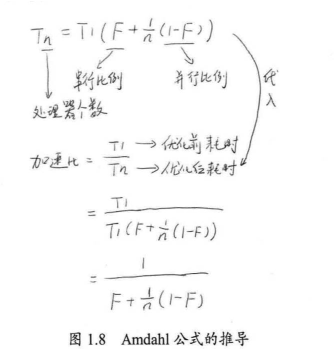 Tn = T1(F + 1/n(1-F))
串行比例 并行比例
处理器个数
代入
加速比 = T1/Tn → 优化前耗时
→ 优化后耗时
= T1/(T1(F + 1/n(1-F)))
= 1/(F + 1/n(1-F))
图 1.8 Amdahl 公式的推导